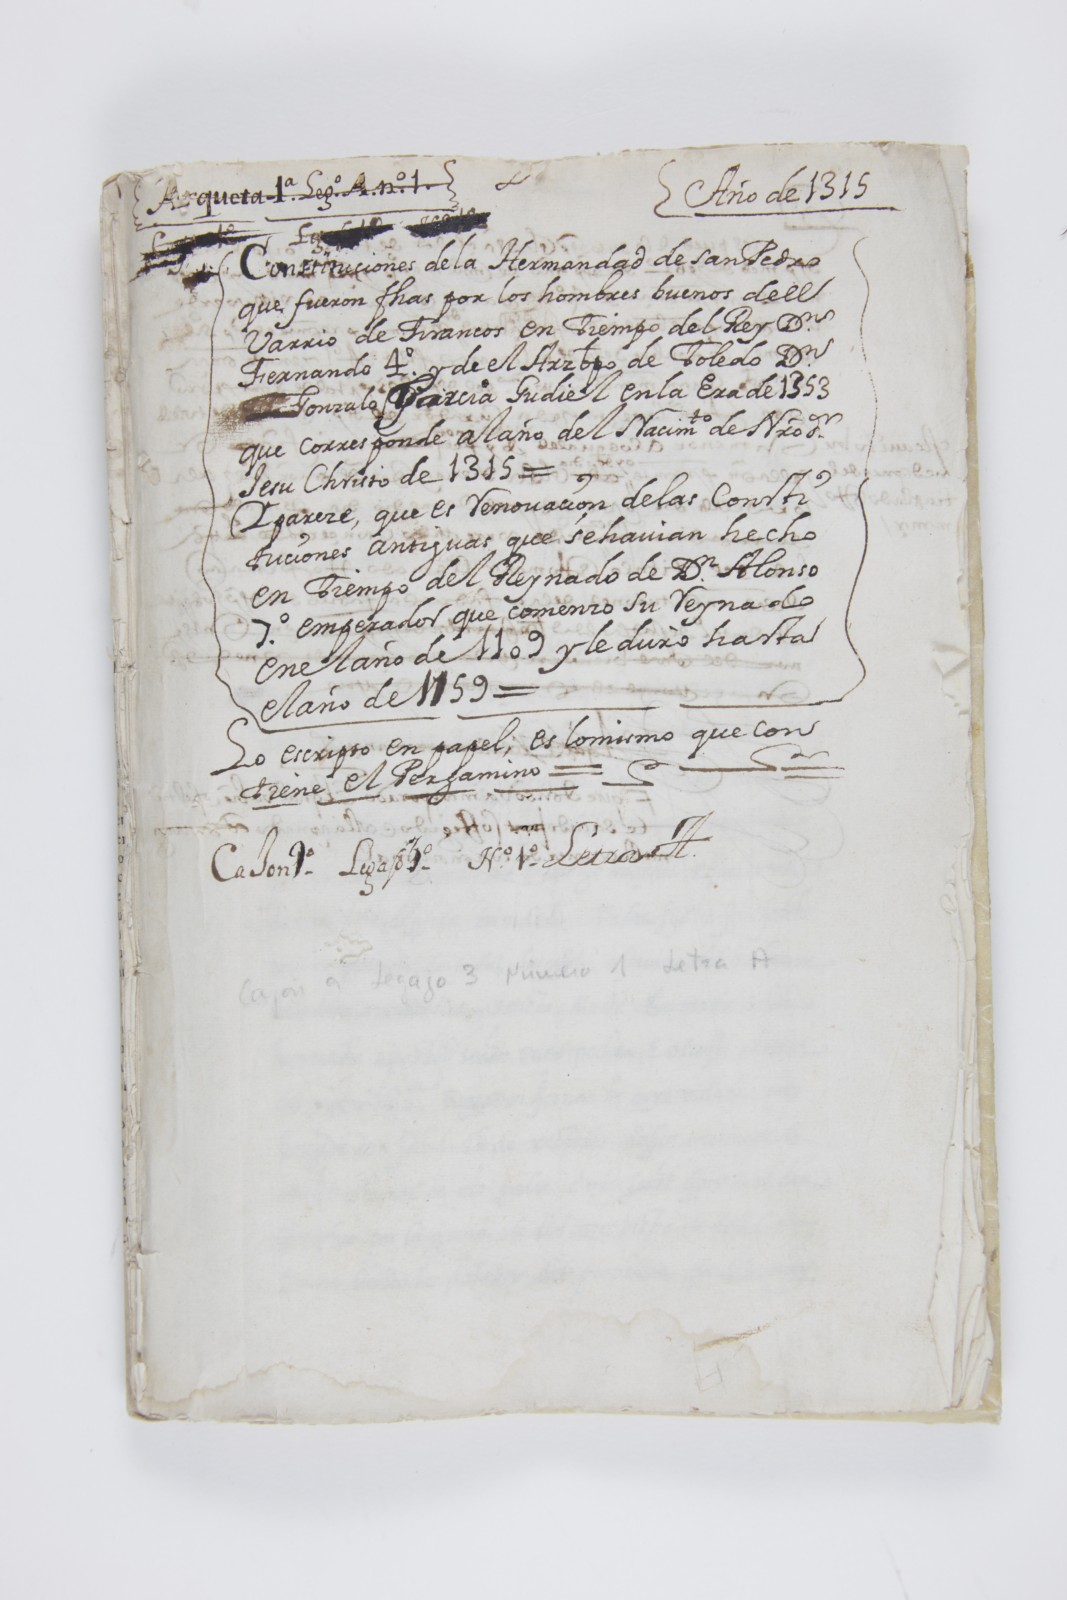 Arqueta 1ª Legº. A. nº. 1.
Año de 1315
Constituciones de la Hermandad de san Pedro
que fueron fhas por los hombres buenos dell
Varrio de Francos en Tiempo del Rey Dn
Fernando 4º. y de el Arzbpo de Toledo Dn
Gonzalo Garcia Gudiel en la Era de 1353
que corresponde al año del Nacimto de Nro Sr.
Jesu Christo de 1315 =
Y pareze, que es renovacion de las Consti
tuciones antiguas que se havian hecho
en Tiempo del Reynado de Dn. Alonso
7º. emperador que comenzo su reynado
en el año de 1109 y le durò hasta
el año de 1159 =
Lo escripto en papel, es lo mismo que con
tiene el Pergamino =
Cajon 9º. Legajo 3º. Nº. 1º. Letra A.
Cajon 9 Legajo 3 Número 1 Letra A